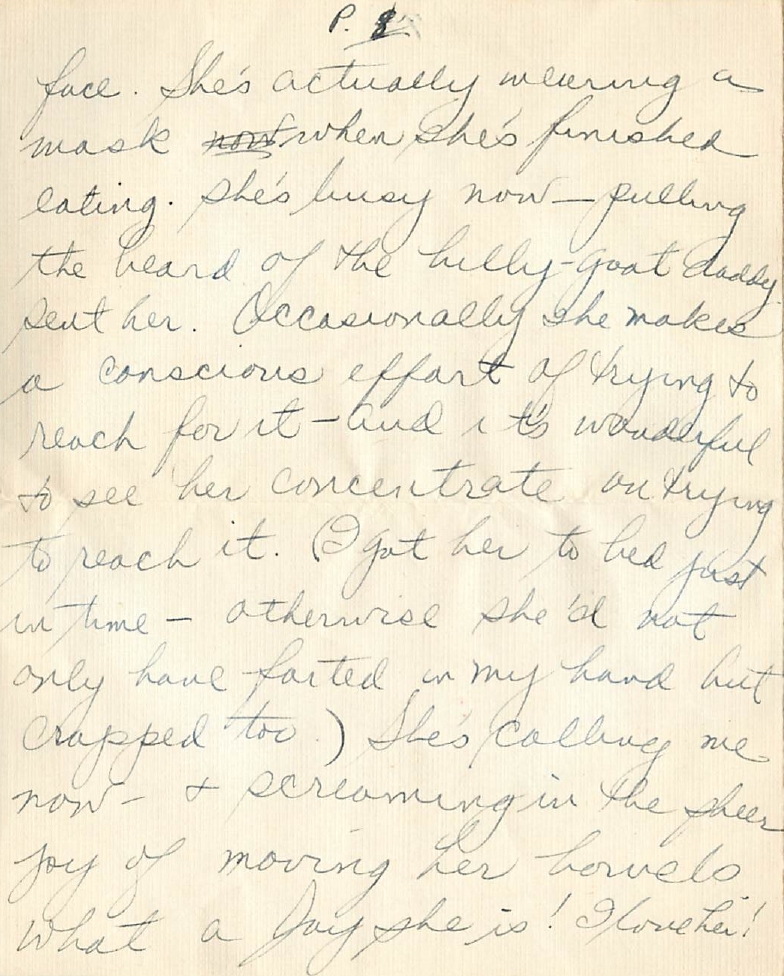 P. 8
face. She's actually wearing a
mask now when she's finished
eating. She's busy now — pulling
the beard of the billy-goat daddy
sent her. Occasionally she makes
a conscious effort of trying to
reach for it — and it's wonderful
to see her concentrate on trying
to reach it. (I got her to bed just
in time — otherwise she'd not
only have farted in my hand but
crapped too.) She's calling me
now — & screaming in the sheer
joy of moving her bowels
What a Joy she is! I love her!